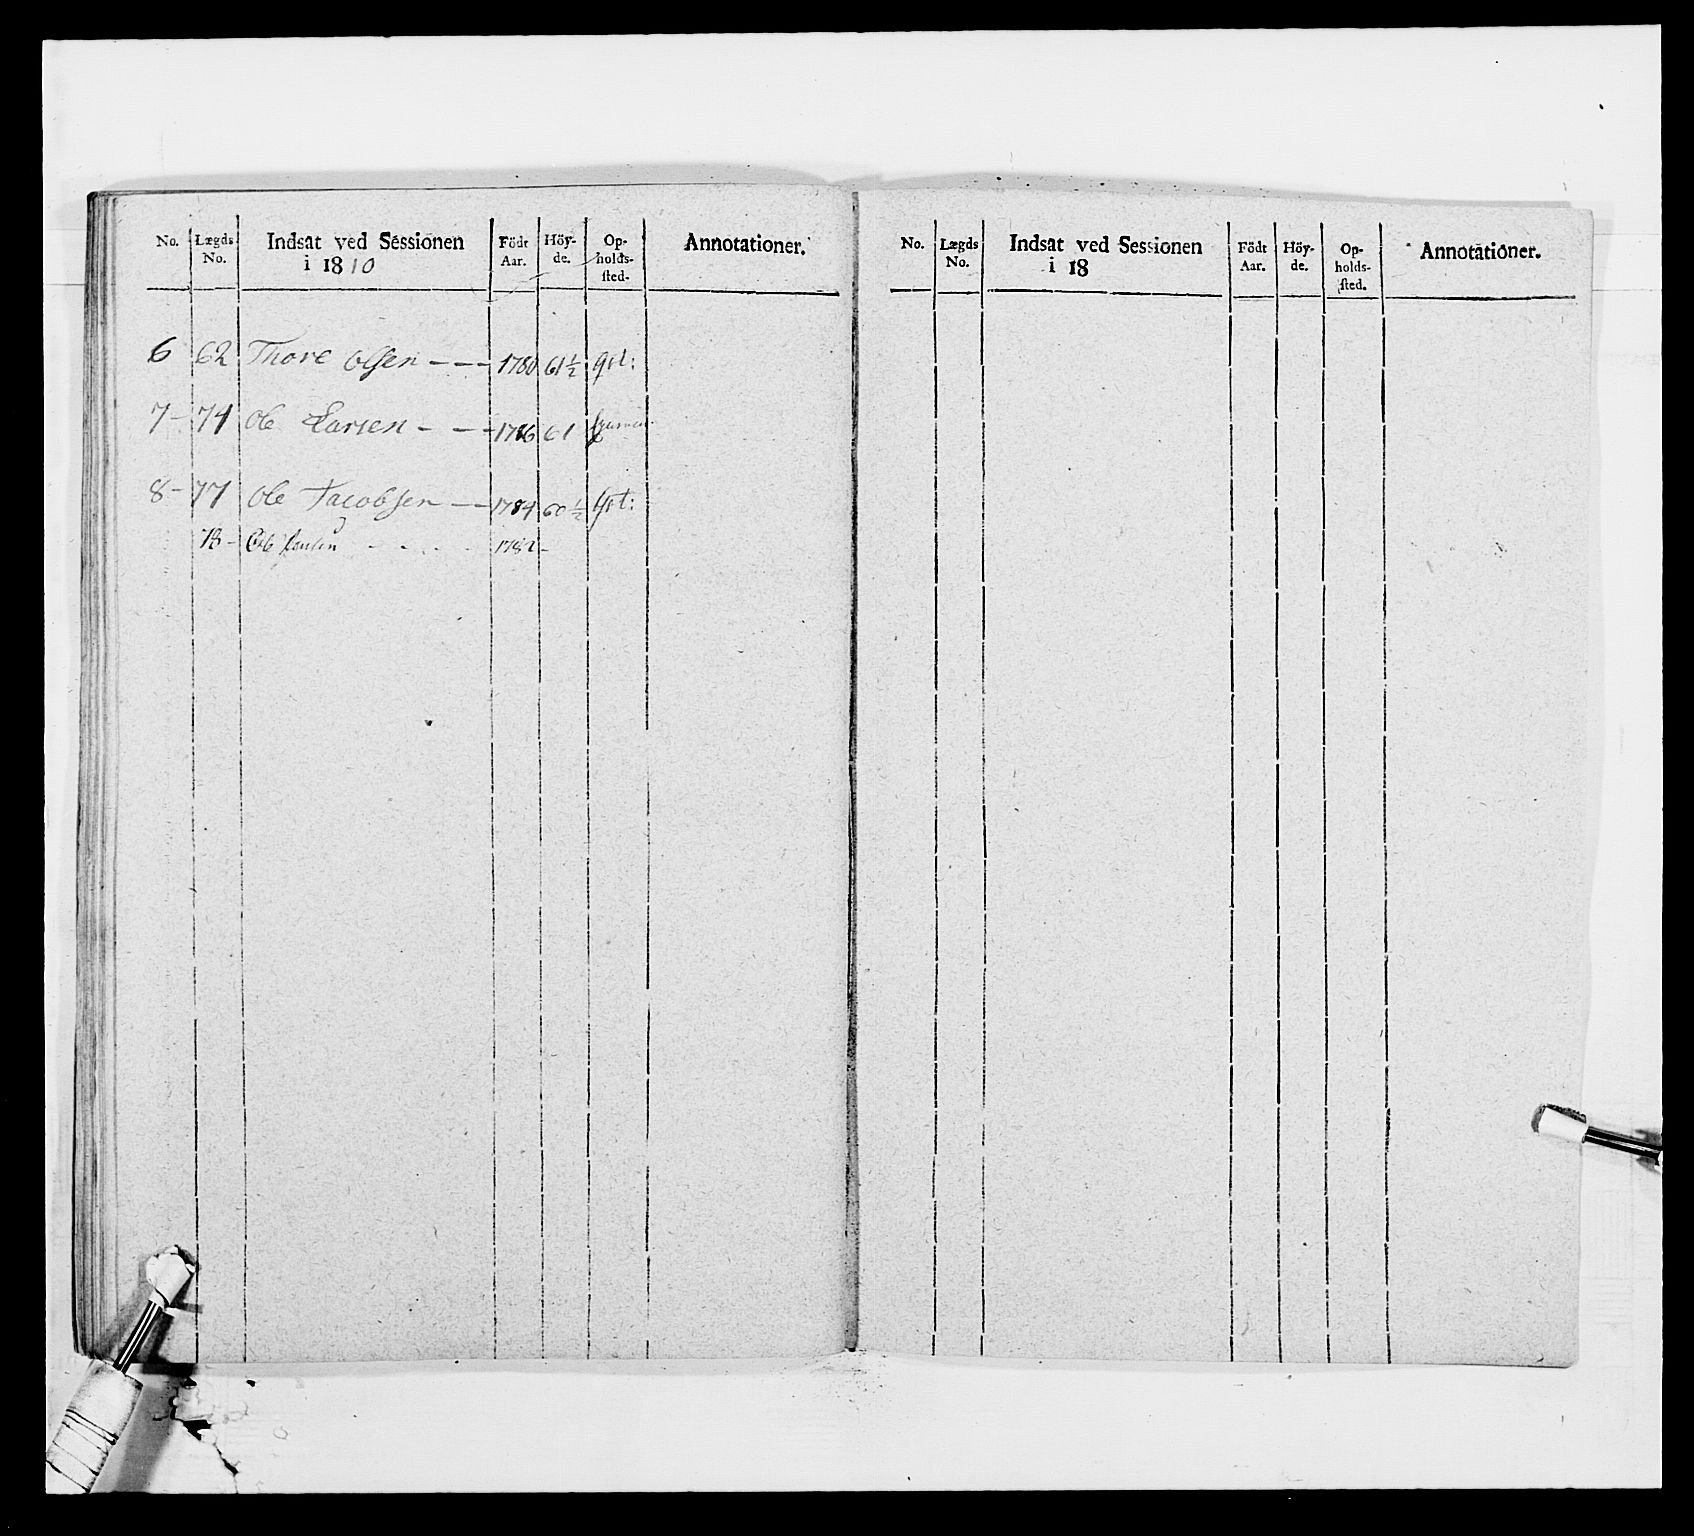 No. Lægds No. Indsat ved Sessionen i 1810 Födt Aar. Höy-de. Op-holds-sted. Annotationer.
6 62 Thore Olsen --- 1780 61 1/2 Gvl:
7- 74 Ole Larsen - -- 1786 61
8- 77 Ole Jacobsen -- 1784 60 1/2 Gvl:
78- Ole - - - - 1782-
No. Lægds No. Indsat ved Sessionen i 18 Födt Aar. Höy-de. Op-holds-sted. Annotationer.